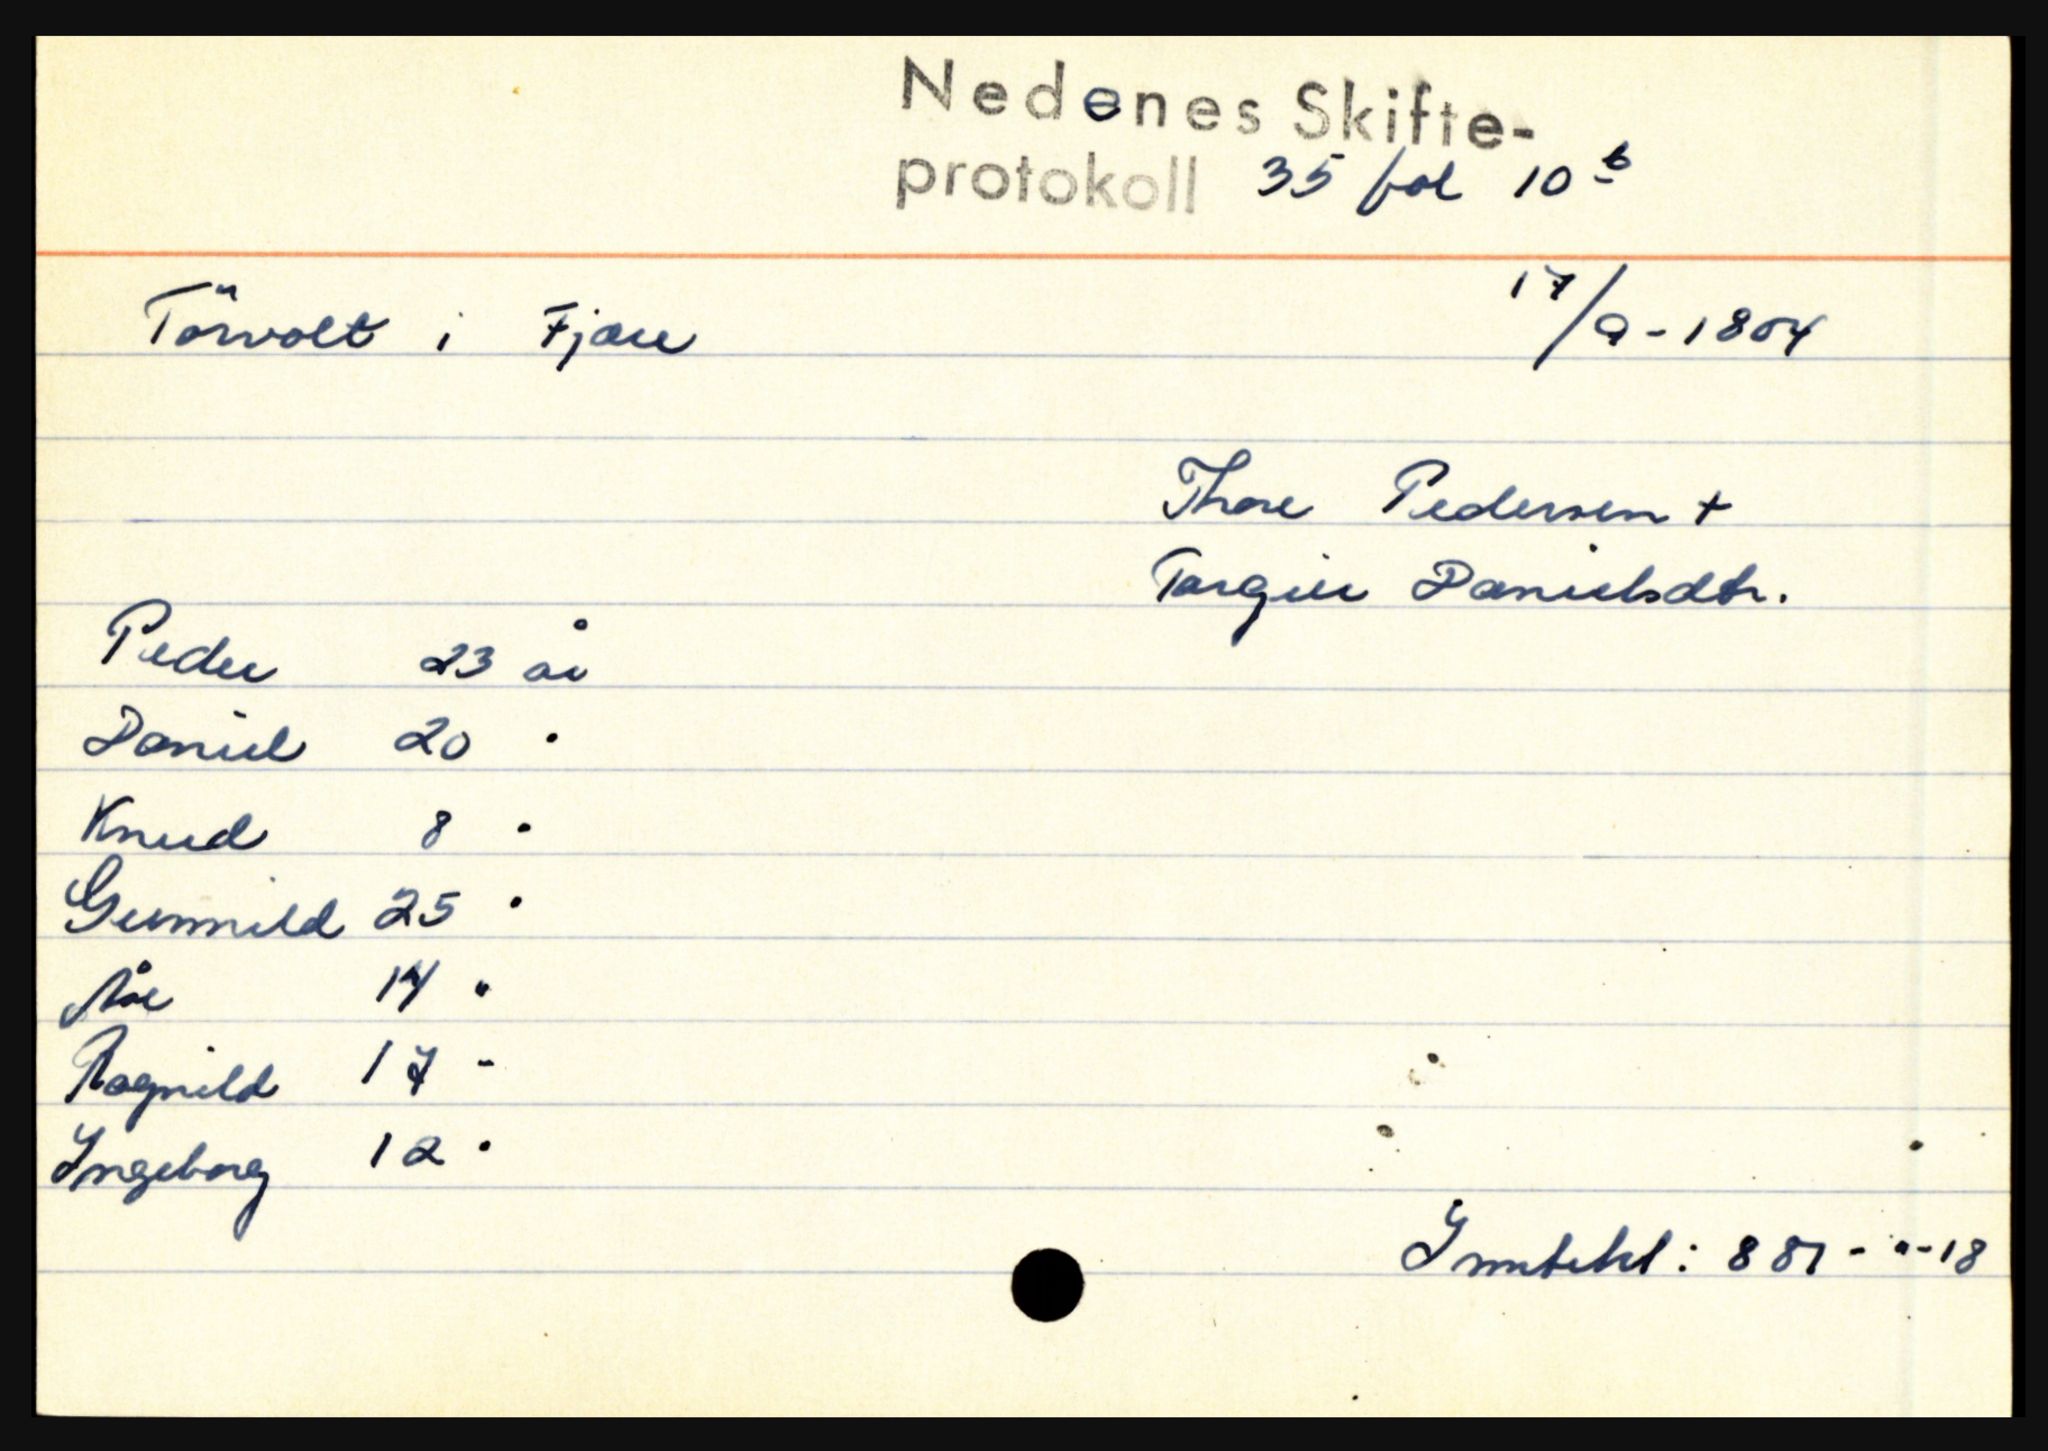 Nedenes Skifte-
protokoll 35 fol 10 b
Törvolt i Fjære 17/9-1804
Thore Pedersen +
Torgier Danielsdtr.
Peder 23 år
Daniel 20 "
Knud 8 "
Gunnild 25 "
Åse 14 "
Ragnild 17 "
Ingeborg 12 "
Inntekt: 881 - " - 18